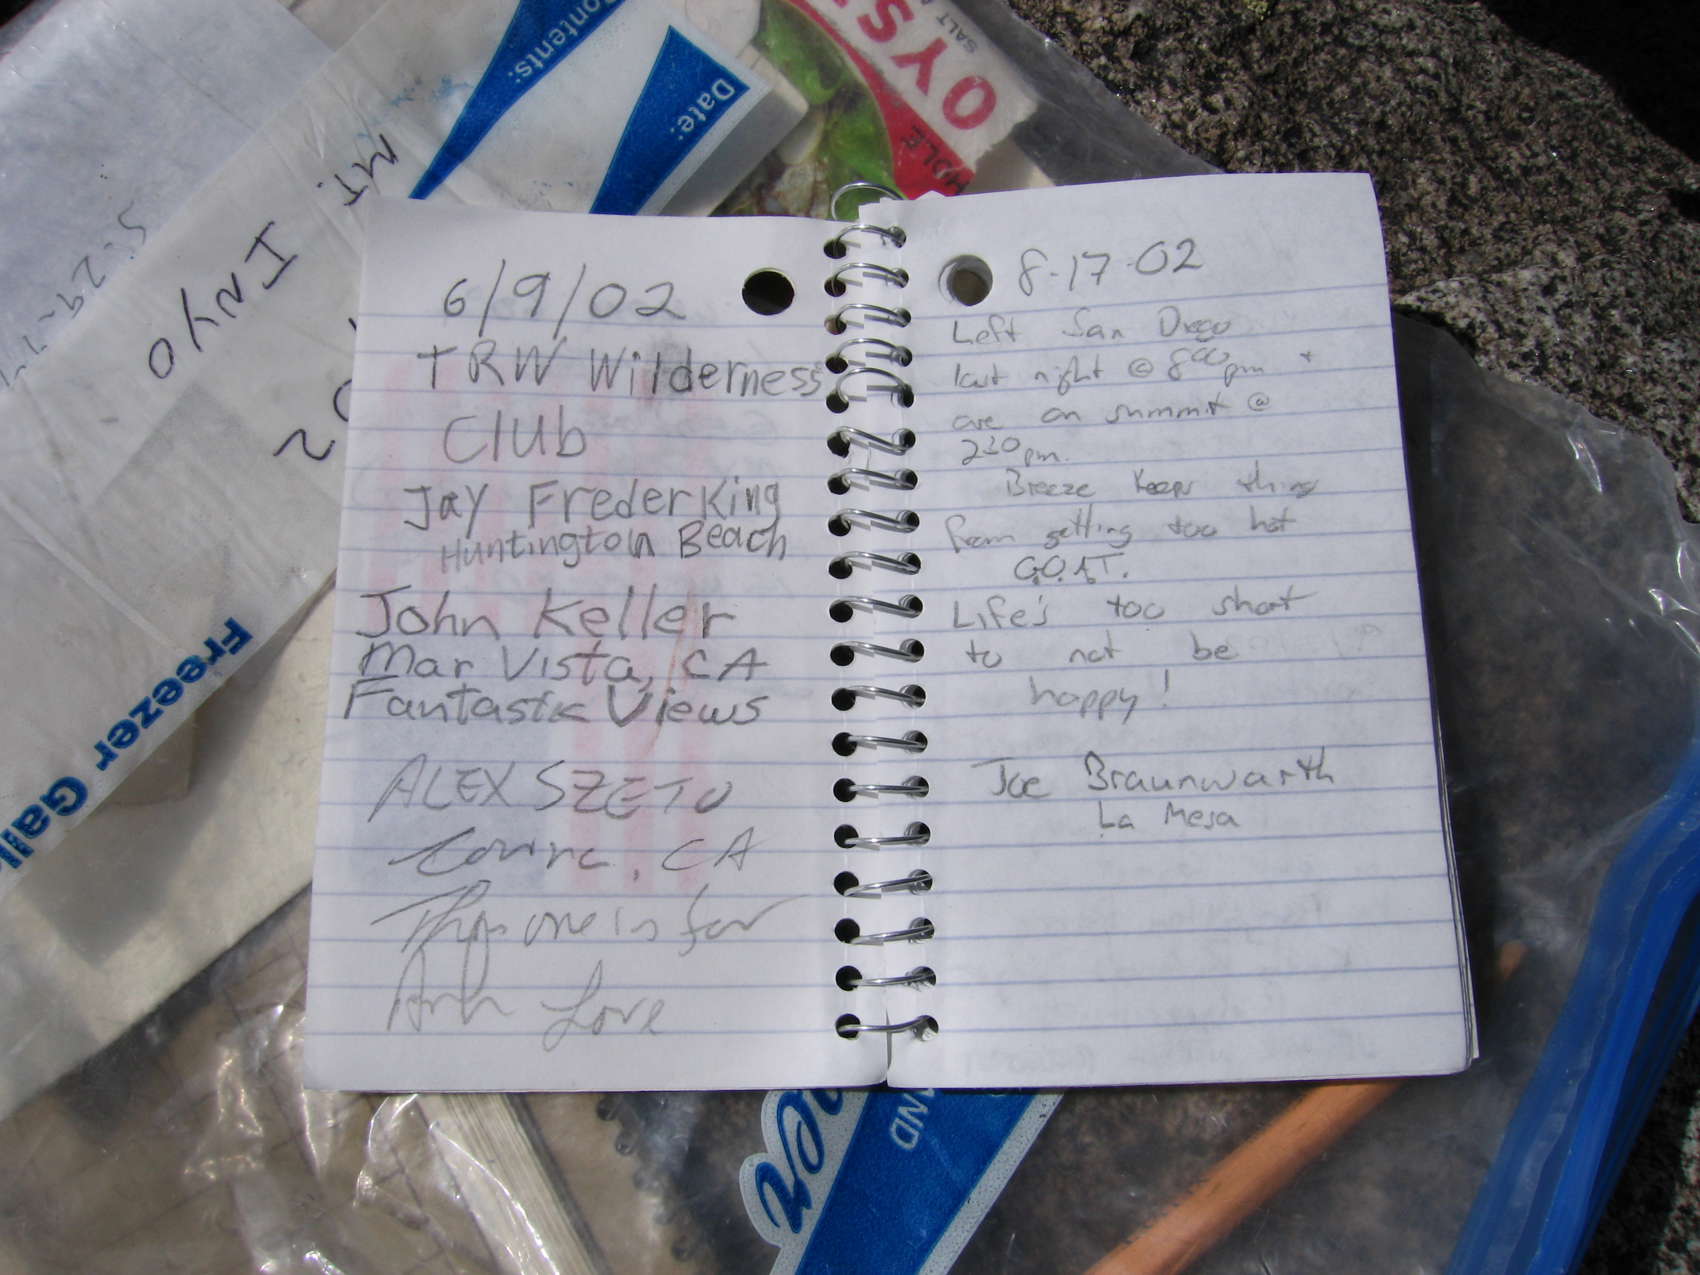 Contents:
Date:
OYS
SALT
HOLE
MT.
INYO
5-29-
02
Freezer Gall
6/9/02
TRW Wilderness
Club
Jay Frederking
Huntington Beach
John Keller
Mar Vista, CA
Fantastic Views
ALEX SZETO
Covina, CA
This one is for
Love
8-17-02
Left San Diego
last night @ 800pm +
are on summit @
230pm.
Breeze keeps things
from getting too hot
G.O.A.T.
Life's too short
to not be
happy!
Joe Braunwarth
La Mesa
AND